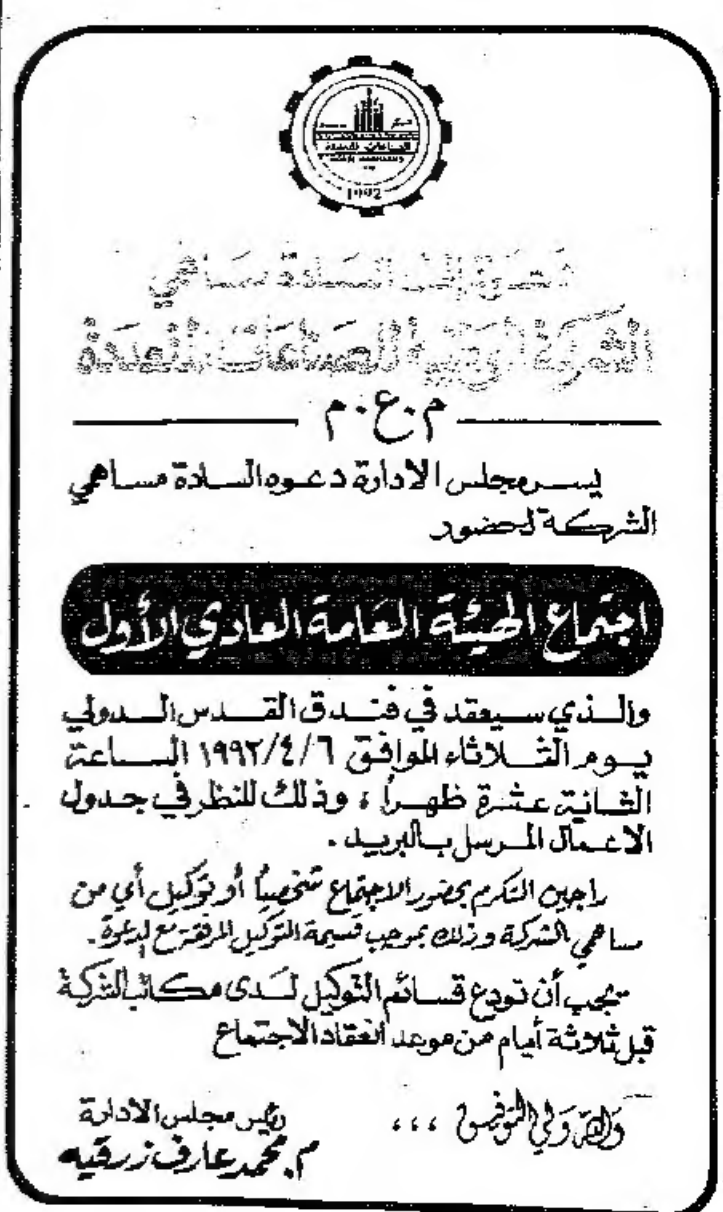 1992
دعوة إلى السادة مساهمي
الشركة الوطنية للصناعات المتعددة
م.ع.م
يسر مجلس الادارة دعوه السادة مساهمي
الشركة لحضور
اجتماع الهيئة العامة العادي الأول
والذي سيعقد في فندق القدس الدولي
يوم الثلاثاء الموافق ١٩٩٢/٤/٦ الساعة
الثانية عشرة ظهراً ، وذلك للنظر في جدول
الاعمال المرسل بالبريد .
راجين التكرم بحضور الاجتماع شخصياً أو توكيل أي من
مساهمي الشركة وذلك بموجب قسيمة التوكيل المرفقة مع الدعوة .
يجب أن تودع قسائم التوكيل لدى مكاتب الشركة
قبل ثلاثة أيام من موعد انعقاد الاجتماع
والله ولي التوفيق ،،،
رئيس مجلس الادارة
م. محمد عارف زرقيه